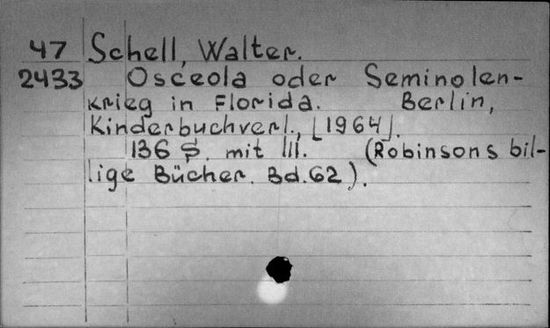 47 Schell, Walter.
2433 Osceola oder Seminolen-
krieg in Florida. Berlin,
Kinderbuchverl., [1964].
136 S. mit Ill. (Robinsons bil-
lige Bücher. Bd.62).